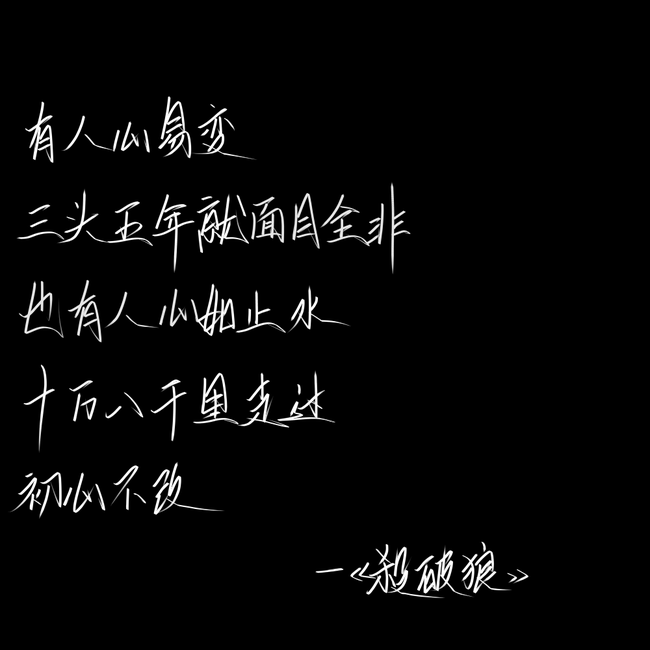 有人心易变
三头五年就面目全非
也有人心如止水
十万八千里走过
初心不改
—《殺破狼》